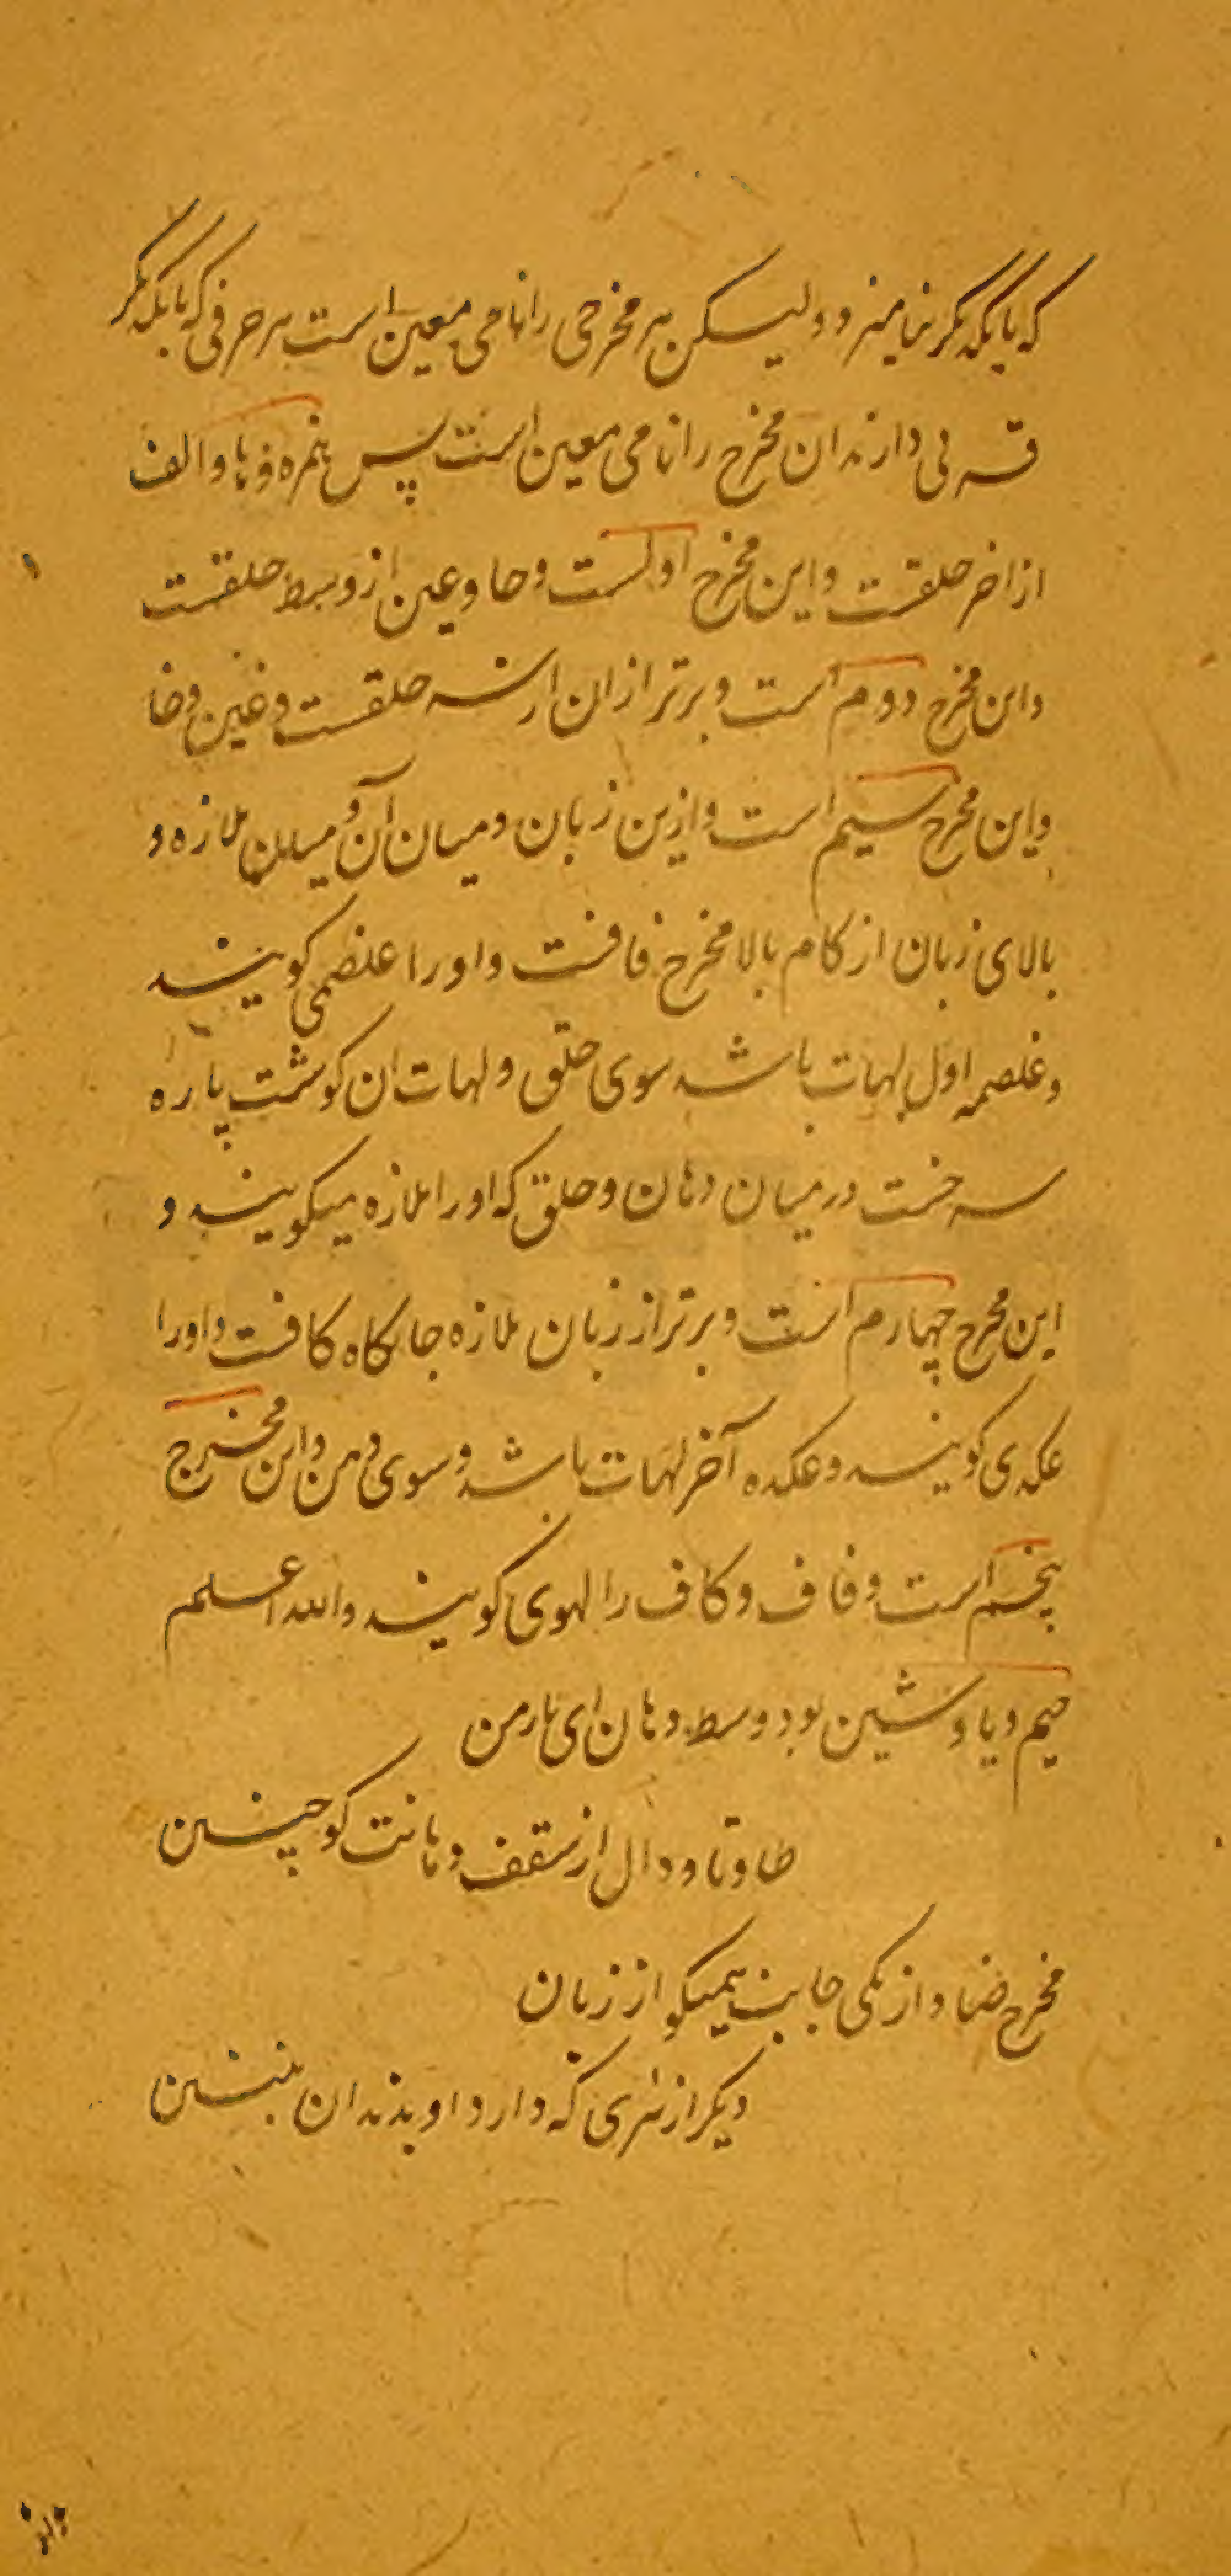 که با یکدیگر نیامیزد ولیسکن هر مخرجی را نامی معین است هر حرفی که با یکدیگر
قربی دارند ان مخرج را نامی معین است پس همزه و ها و الف
از اخر حلقت و این مخرج اولست و حا و عین از وسط حلقست
و این مخرج دوم است و برتر ازان از سر حلقست و غین و خا
و این مخرج سیم است و از بن زبان و میان آن و میان ملازه و
بالای زبان از کام بالا مخرج قافت و اورا غلصمی کویند
و غلصمه اول لهات باشد سوی حلق و لهات ان کوشت پاره
سرخست درمیان دهان و حلق که اورا ملازه میکویند و
این مخرج چهارم است و برتر از زبان ملازه جایکاه کافت و اورا
عکدی کویند و عکده آخر لهات باشد و سوی دهن و این مخرج
پنجم است و قاف و کاف را لهوی کویند والله اعلم
جیم و یا و شین بود وسط دهان ای یار من
طا و تا و دال از سقف دهانت کو چنین
مخرج ضاد از یکی جانب همیکو از زبان
دیکر از تری که دارد او بدندان ببین